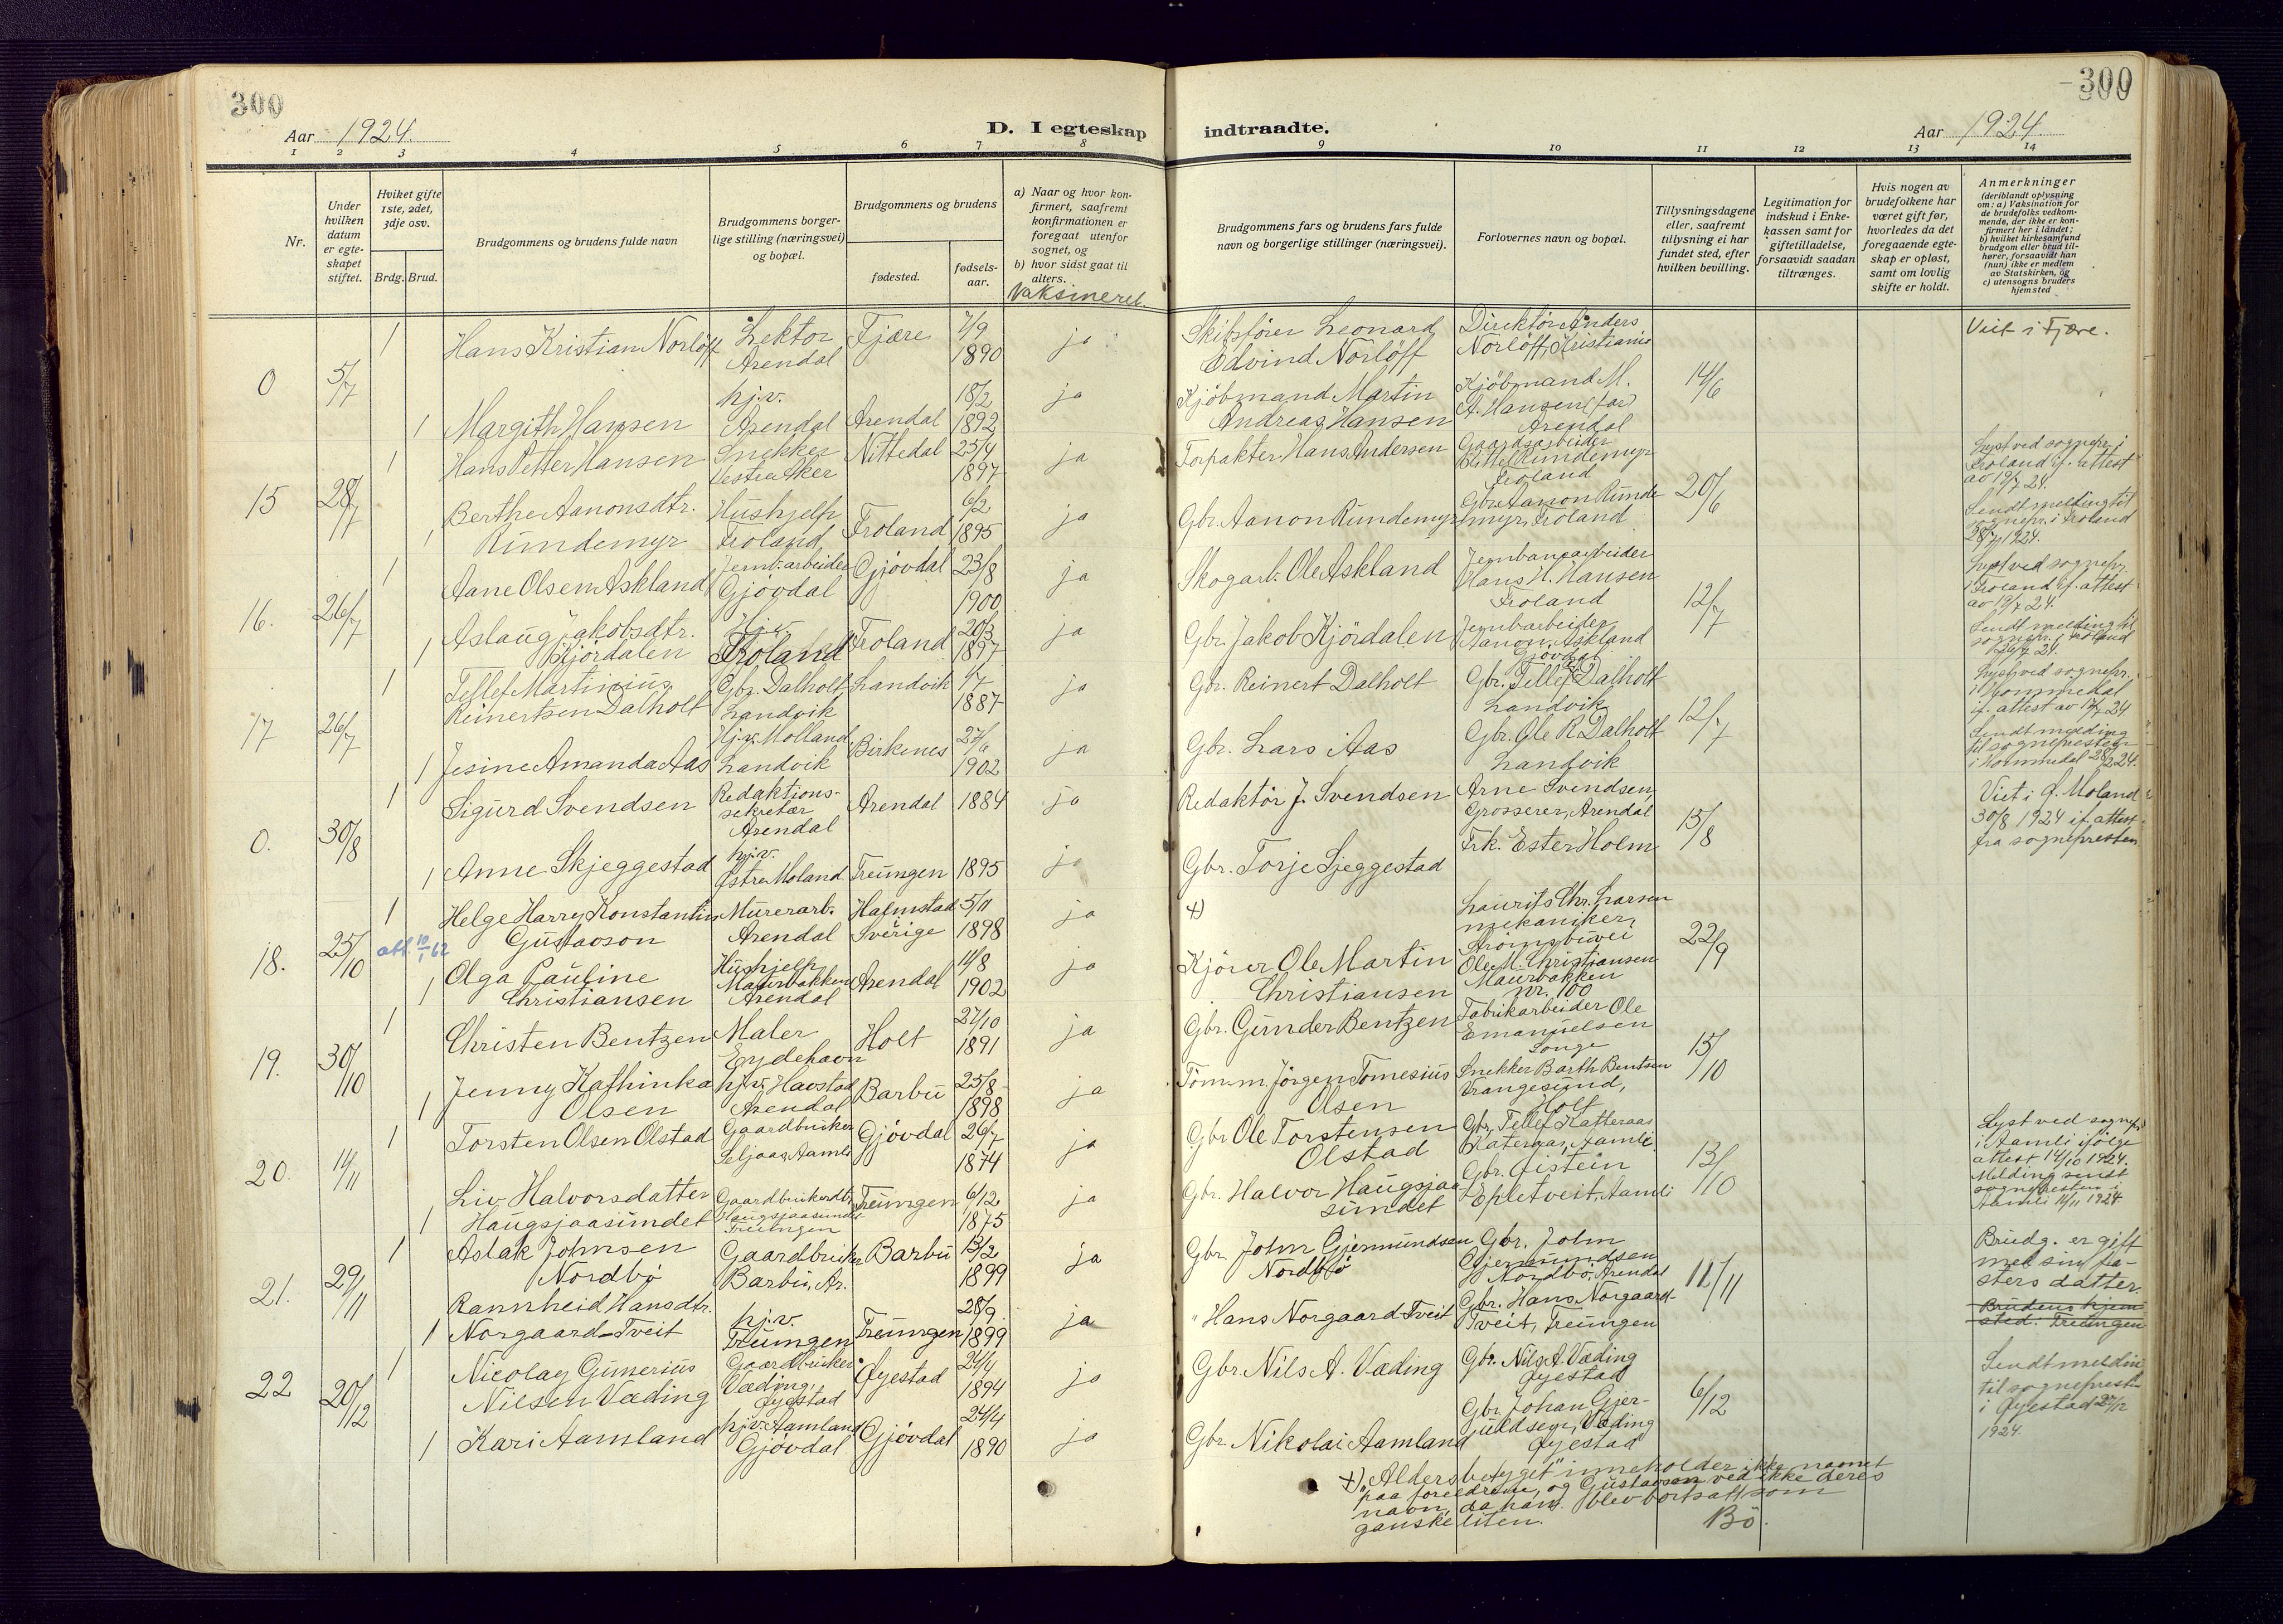 300
300
Aar 1924.
D. I egteskap indtraadte.
Aar 1924.
1 2 3 4 5 6 7 8 9 10 11 12 13 14
Nr.
Under hvilken datum er egteskapet stiftet.
Hvilket gifte 1ste, 2det, 3dje osv.
Brdg. Brud.
Brudgommens og brudens fulde navn
Brudgommens borgerlige stilling (næringsvei) og bopæl.
Brudgommens og brudens
fødested.
fødselsaar.
a) Naar og hvor konfirmert, saafremt konfirmationen er foregaat utenfor sognet, og
b) hvor sidst gaat til alters.
Vaksineret
Brudgommens fars og brudens fars fulde navn og borgerlige stillinger (næringsvei).
Forlovernes navn og bopæl.
Tillysningsdagene eller, saafremt tillysning ei har fundet sted, efter hvilken bevilling.
Legitimation for indskud i Enkekassen samt for giftetilladelse, forsaavidt saadan tiltrænges.
Hvis nogen av brudefolkene har været gift før, hvorledes da det foregaaende egteskap er opløst, samt om lovlig skifte er holdt.
Anmerkninger
(deriblandt oplysning om: a) Vaksination for de brudefolks vedkommende, der ikke er konfirmert her i landet; b) hvilket kirkesamfund brudgom eller brud tilhører, forsaavidt han (hun) ikke er medlem av Statskirken, og c) utensogns bruders hjemsted
0 5/7
1 Hans Kristian Norlöff Lektor Arendal Fjære 7/9 1890 ja Skibsfører Leonard Edvind Norlöff Direktör Anders Norlöff, Kristiania 14/6 Viet i Fjære.
1 Margith Hansen hj.v. Arendal Arendal 18/2 1892 ja Kjöbmand Martin Andreas Hansen Kjöbmand M. A. Hansen (far) Arendal
15 28/7
1 Hans Petter Hansen Snekker Vestre Aker Nittedal 25/4 1897 ja Forpakter Hans Andersen Gaardsarbeider Rundemyr Froland 20/6 Lyst ved sognepr. i Froland if. attest av 19/7 24.
1 Berthe Aanonsdtr. Rundemyr Hushjelp Froland Froland 6/2 1895 ja Gbr. Aanon Rundemyr Gbr. Aanon Rundemyr, Froland Sendt melding til sognepr. i Froland 28/7 1924.
16. 26/7
1 Aane Olsen Askland Jernb.arbeider Gjövdal Gjövdal 23/8 1900 ja Skogarb. Ole Askland Jernbanearbeider Hans H. Hansen Froland 12/7 Lyst ved sognepr. i Froland if. attest av 19/7 24.
1 Aslaug Jakobsdtr. Kjördalen Hj.v. Froland Froland 20/3 1897 ja Gbr. Jakob Kjördalen Jernbarbeider Aanon Askland Gjövdal Sendt melding til sognepr. i Froland 26/7 24.
17 26/7
1 Tellef Martinius Reinertsen Dalholt Gbr. Dalholt Landvik Landvik 1/7 1887 ja Gbr. Reinert Dalholt Gbr. Tellef Dalholt Landvik 12/7 Lyst ved sognepr. i Hommedal if. attest av 24
1 Jesine Amanda Aas Hj.v. Molland, Landvik Birkenes 1902 ja Gbr. Lars Aas Gbr. Ole R Dalholt Landvik Sendt melding til sognepresten i Hommedal 24.
0. 30/8
1 Sigurd Svendsen Redaktionssekretær Arendal Arendal 1884 ja Redaktör J. Svendsen Arne Svendsen, Grosserer, Arendal 15/8 Viet i Ö. Moland 30/8 1924 if. attest fra sognepresten
1 Anne Skjeggestad hj.v. Østre Moland Treungen 1895 ja Gbr. Torje Sjeggestad Frk. Ester Holm
18. 25/10 1/62
1 Helge Harry Konstantin Gustavson Murerarb. Arendal Halmstad Sverige 5/11 1898 ja +) Laurits Chr. Larsen mekaniker, Strömsbuvei 22/9
1 Olga Pauline Christiansen Hushjelp Maurbakken Arendal Arendal 11/8 1902 ja Kjörer Ole Martin Christiansen Ole M. Christiansen Maurbakken nr. 100
19. 30/10
1 Christen Bentzen Maler Eydehavn Holt 27/10 1891 ja Gbr. Gunder Bentzen Fabrikarbeider Ole Emanuelsen Longe 15/10
1 Jenny Kathinka Olsen hj.v. Havstad Arendal Barbu 25/8 1898 ja Tömm. Jörgen Tomesius Olsen Snekker Barth Bentsen Vrangesund, Holt
20. 14/11
1 Torsten Olsen Olstad Gaardbruker Seljaas, Aamli Gjövdal 26/7 1874 ja Gbr. Ole Torstensen Olstad Gbr. Tellef Katteraas Kateraas, Aamli 13/10 Lyst ved sognepr. i Aamli ifölge attest 14/10 1924. Melding sendt sognepresten i Aamli 14/11 1924
1 Liv Halvorsdatter Haugsjaasundet Gaardbrukerdtr. Haugsjaasundet Treungen Treungen 6/12 1875 ja Gbr. Halvor Haugsjaasundet Gbr. Öistein Epletveit, Aamli
21. 29/11
1 Aslak Johnsen Nordbö Gaardbruker Barbu, Ar. Barbu 13/2 1899 ja Gbr. John Gjermundsen Nordbö Gbr. John Gjermundsen Nordbö, Arendal 11/11 Brudg. er gift med sin fasters datter.
1 Rannheid Hansdtr. Norgaard-Tveit hj.v. Treungen Treungen 28/9 1899 ja " Hans Norgaard-Tveit Gbr. Hans Norgaard-Tveit, Treungen Brudens hjemsted: Treungen
22 20/12
1 Nicolay Gunerius Nilsen Væding Gaardbruker Væding, Øyestad Øyestad 24/4 1894 ja Gbr. Nils A. Væding Gbr. Nils A. Væding Øyestad 6/12 Sendt melding til sogneprest i Øyestad 27/12 1924.
1 Kari Aamland hj.v. Aamland Gjövdal Gjövdal 24/4 1890 ja Gbr. Nikolai Aamland Gbr. Johan Gjerjuldsen, Væding Øyestad
+) "Aldersbetyget" inneholder ikke navnet
paa foreldrene, og Gustavson ved ikke deres
navn, da han blev bortsatt som
ganske liten. Bö.